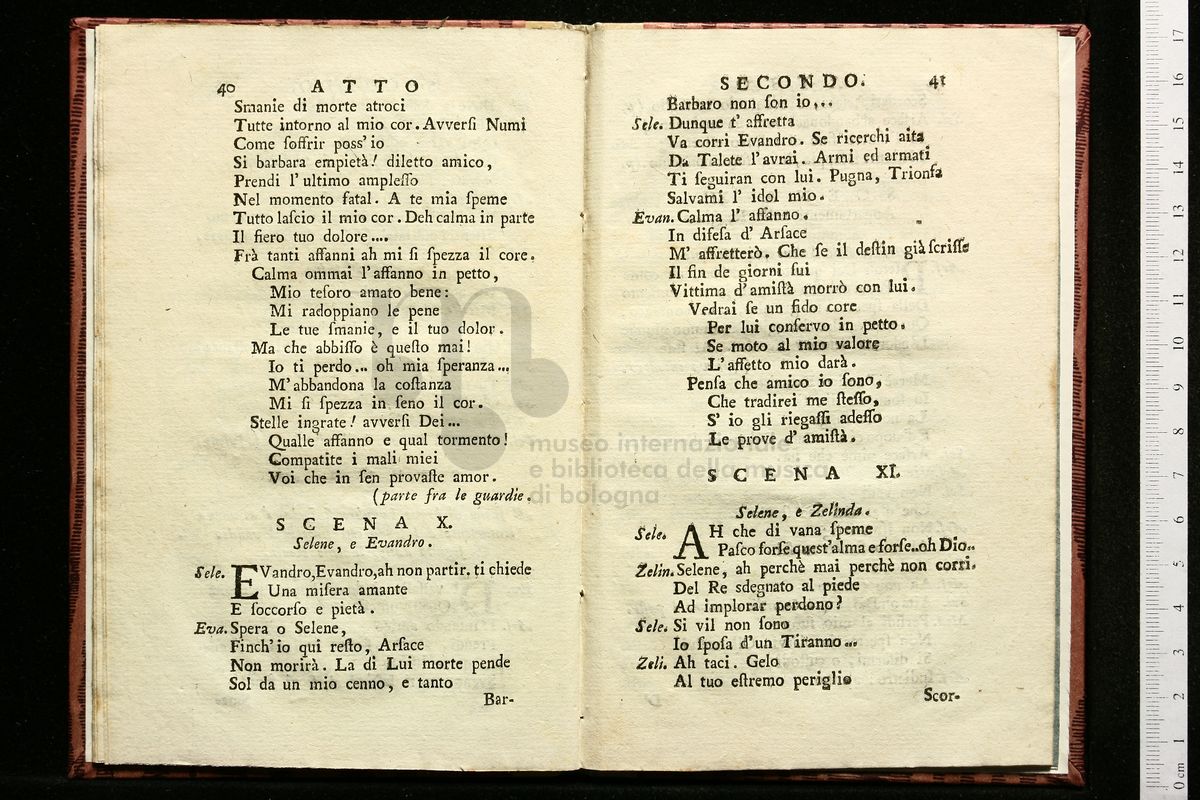 40 ATTO
Smanie di morte atroci
Tutte intorno al mio cor. Avverſi Numi
Come ſoffrir poss' io
Si barbara empietà! diletto amico,
Prendi l' ultimo ampleſſo
Nel momento fatal. A te mia ſpeme
Tutto laſcio il mio cor. Deh calma in parte
Il fiero tuo dolore....
Frà tanti affanni ah mi ſi ſpezza il core.
Calma ommai l'affanno in petto,
Mio teſoro amato bene:
Mi radoppiano le pene
Le tue ſmanie, e il tuo dolor.
Ma che abbiſſo è queſto mai!
Io ti perdo... oh mia ſperanza...
M'abbandona la coſtanza
Mi ſi ſpezza in ſeno il cor.
Stelle ingrate! avverſi Dei...
Qualle affanno e qual tormento!
Compatite i mali miei
Voi che in ſen provaſte amor.
(parte fra le guardie.
SCENA X.
Selene, e Evandro.
Sele. EVandro, Evandro, ah non partir. ti chiede
Una miſera amante
E ſoccorſo e pietà.
Eva. Spera o Selene,
Finch' io qui reſto, Arſace
Non morirà. La di Lui morte pende
Sol da un mio cenno, e tanto
Bar-
SECONDO. 41
Barbaro non ſon io...
Sele. Dunque t' affretta
Va corri Evandro. Se ricerchi aita
Da Talete l'avrai. Armi ed armati
Ti ſeguiran con lui. Pugna, Trionfa
Salvami l' idol mio.
Evan. Calma l' affanno.
In difeſa d' Arſace
M' affretterò. Che ſe il deſtin già ſcriſſe
Il fin de giorni ſui
Vittima d'amiſtà morrò con lui.
Vedrai ſe un fido core
Per lui conſervo in petto.
Se moto al mio valore
L'affetto mio darà.
Penſa che amico io ſono,
Che tradirei me ſteſſo,
S' io gli niegaſſi adeſſo
Le prove d' amiſtà.
SCENA XI.
Selene, e Zelinda.
Sele. AH che di vana ſpeme
Paſco forſe quest'alma e forſe..oh Dio..
Zelin. Selene, ah perchè mai perchè non corri.
Del Re sdegnato al piede
Ad implorar perdono?
Sele. Si vil non ſono
Io ſpoſa d'un Tiranno...
Zeli. Ah taci. Gelo
Al tuo eſtremo periglio
Scor-
museo internazionale
e biblioteca della musica
di bologna
0 cm 1 2 3 4 5 6 7 8 9 10 11 12 13 14 15 16 17